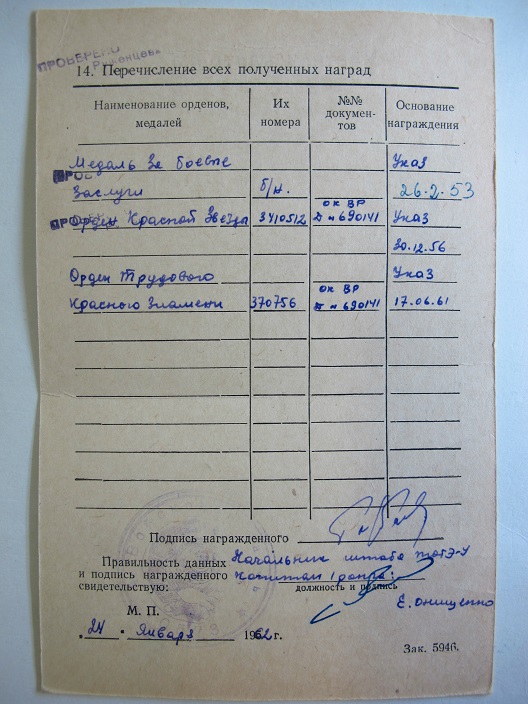 ПРОВЕРЕНО
14. Перечисление всех полученных наград
Наименование орденов, медалей
Их номера
№№ документов
Основание награждения
Медаль За боевые Указ
Заслуги б/н. 26.2.53
ок ВР
Орден Красной Звезда 3410512 № 690141 Указ
30.12.56
Орден Трудового Указ
ок ВР
Красного Знамени 370756 № 690141 17.06.61
Подпись награжденного
Правильность данных Начальник штаба
и подпись награжденного капитан 1 ранга:
свидетельствую: должность и подпись
Е. Онищенко
М. П.
„24“ Января 1962 г.
Зак. 5946.